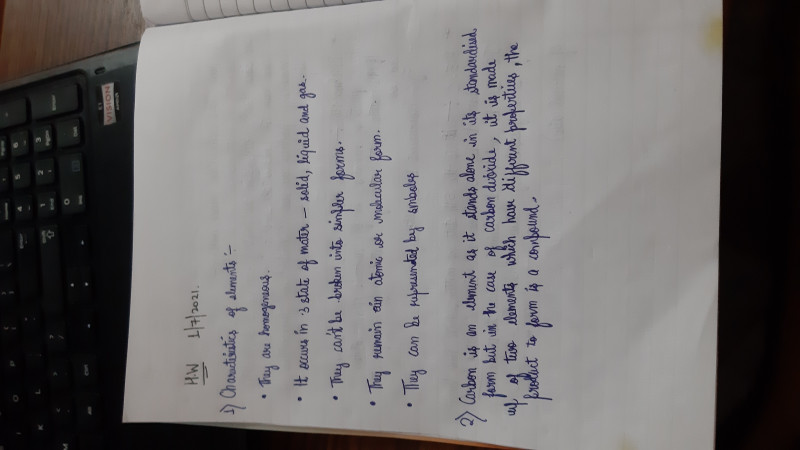 H.W 1/7/2021.
1) Charactristics of elements :-
• They are homogeneous.
• It occurs in 3 state of mater - solid, liquid and gas.
• They can't be broken into simpler forms.
• They remain in atomic or molecular form.
• They can be represented by smbols
2) Carbon is an element as it stands alone in its standardised
form but in the case of carbon dioxide, it is made
up of two elements which have different properties, the
product to form is a compound.
VISION